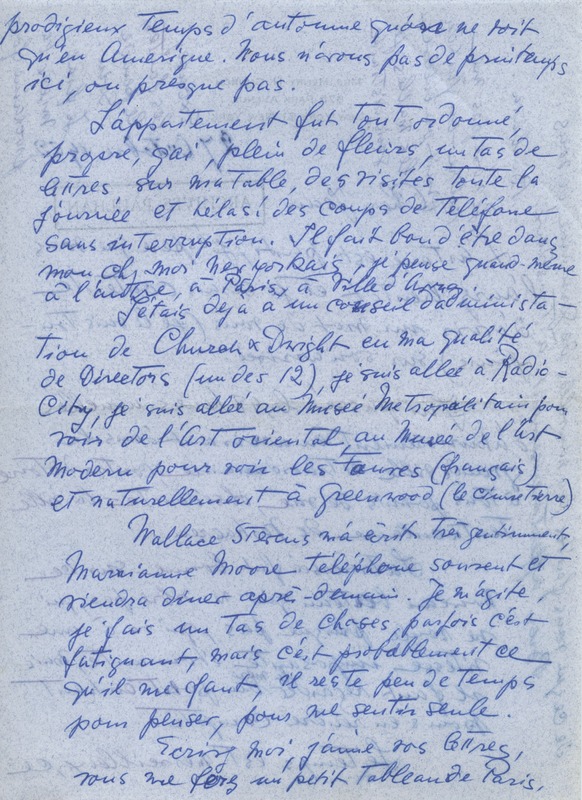 prodigieux temps d'automne qu'on ne voit
qu'en Amérique. Nous n'avons pas de printemps
ici, ou presque pas.
L'appartement fut tout ordonné,
propre, gai, plein de fleurs, un tas de
lettres sur ma table, des visites toute la
journée et hélas! des coups de téléfone
sans interruption. Il fait bon d'être dans
mon chez moi newyorkais, je pense quand-même
à l'autre, à Paris, à Ville d'Avray.
J'étais déjà à un conseil d'administra-
tion de Church & Dwight en ma qualité
de Directors (un des 12), je suis allée à Radio-
City, je suis allée au Musée Metropolitain pour
voir de l'Art oriental, au Musée de l'art
Modern pour voir les fauves (français)
et naturellement à Greenwood (le cimetierre)
Wallace Stevens m'a écrit très gentimment,
Marianne Moore téléphone souvent et
viendra diner après-demain. Je m'agite,
je fais un tas de choses, parfois c'est
fatignant, mais c'est probablement ce
qu'il me faut, il reste peu de temps
pour penser, pour me sentir seule.
Ecrivez moi, j'aime vos lettres,
vous me un petit tableau de Paris,